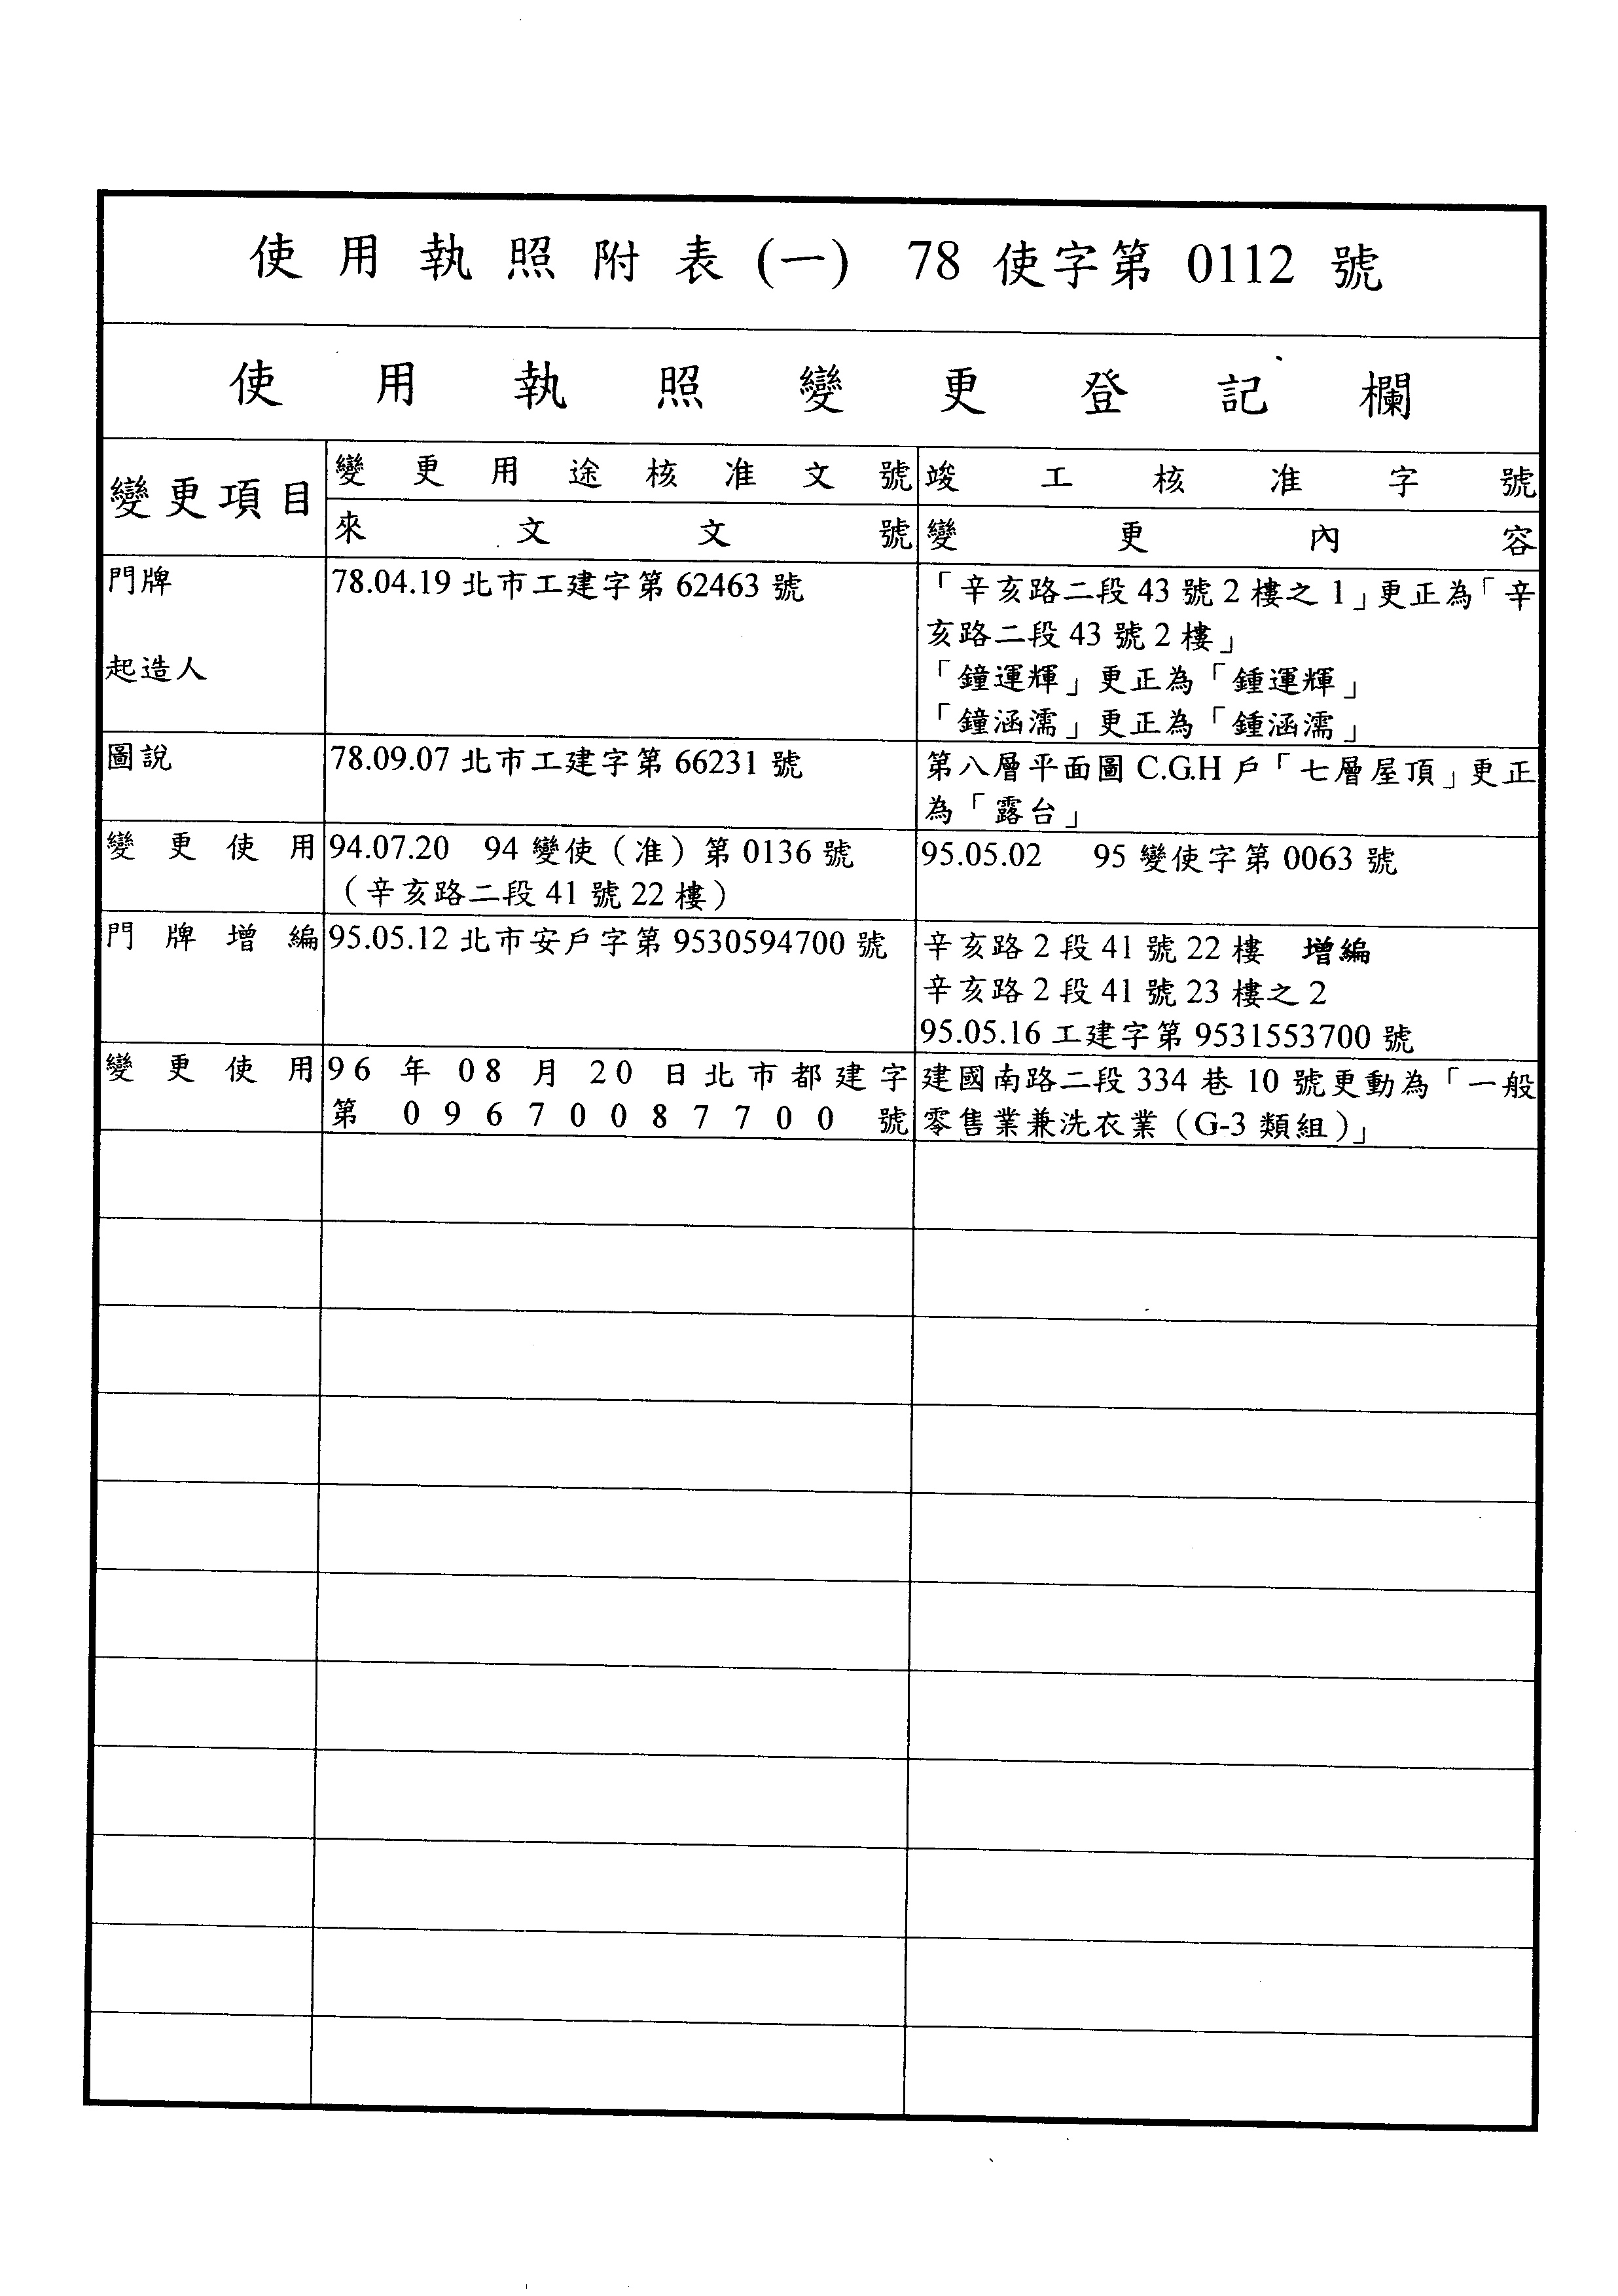 使用執照附表(一) 78 使字第 0112 號
使用執照變更登記欄
變更項目
變更用途核准文號
竣工核准字號
來文文號
變更內容
門牌
起造人
78.04.19 北市工建字第 62463 號
「辛亥路二段 43 號 2 樓之 1」更正為「辛
亥路二段 43 號 2 樓」
「鐘運輝」更正為「鍾運輝」
「鐘涵濡」更正為「鍾涵濡」
圖說
78.09.07 北市工建字第 66231 號
第八層平面圖 C.G.H 戶「七層屋頂」更正
為「露台」
變更使用
94.07.20 94 變使（准）第 0136 號
（辛亥路二段 41 號 22 樓）
95.05.02 95 變使字第 0063 號
門牌增編
95.05.12 北市安戶字第 9530594700 號
辛亥路 2 段 41 號 22 樓 增編
辛亥路 2 段 41 號 23 樓之 2
95.05.16 工建字第 9531553700 號
變更使用
96 年 08 月 20 日北市都建字
第 09670087700 號
建國南路二段 334 巷 10 號更動為「一般
零售業兼洗衣業（G-3 類組）」